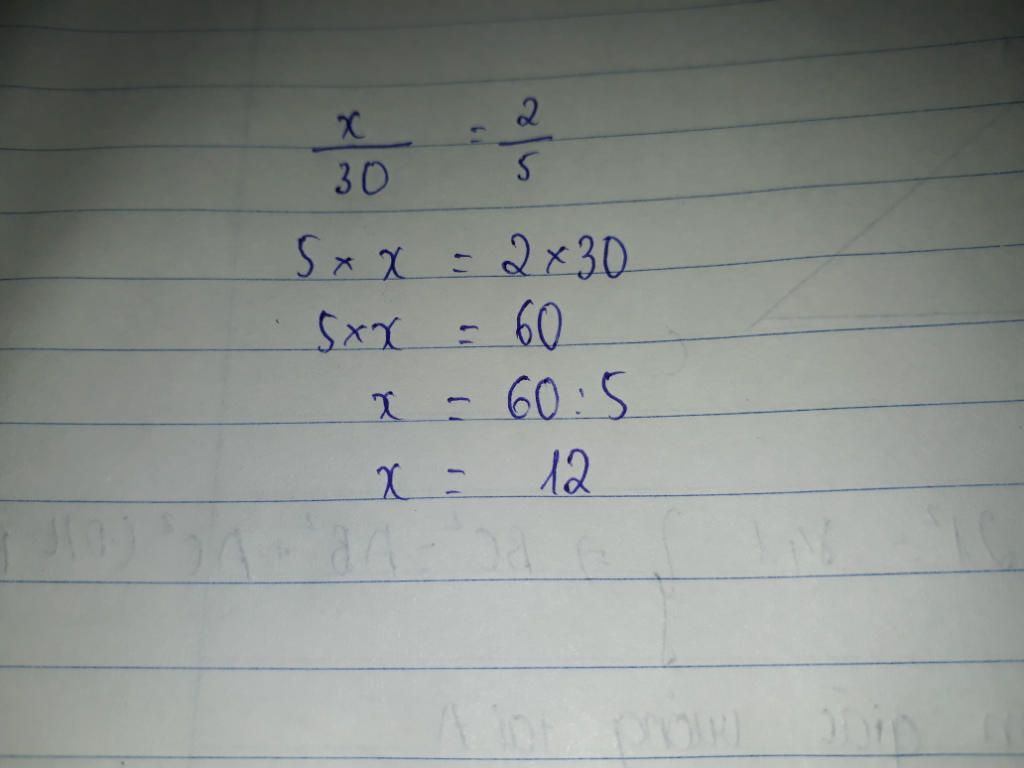 x/30 = 2/5
5 × x = 2 × 30
5 × x = 60
x = 60 : 5
x = 12